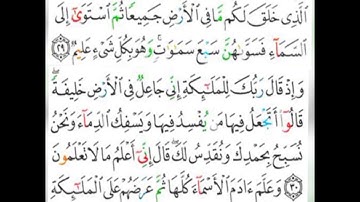 ٱلَّذِى خَلَقَ لَكُم مَّا فِى ٱلْأَرْضِ جَمِيعًا ثُمَّ ٱسْتَوَىٰٓ إِلَى
ٱلسَّمَآءِ فَسَوَّىٰهُنَّ سَبْعَ سَمَٰوَٰتٍ ۚ وَهُوَ بِكُلِّ شَىْءٍ عَلِيمٌ ٢٩
وَإِذْ قَالَ رَبُّكَ لِلْمَلَٰٓئِكَةِ إِنِّى جَاعِلٌ فِى ٱلْأَرْضِ خَلِيفَةً ۖ
قَالُوٓا۟ أَتَجْعَلُ فِيهَا مَن يُفْسِدُ فِيهَا وَيَسْفِكُ ٱلدِّمَآءَ وَنَحْنُ
نُسَبِّحُ بِحَمْدِكَ وَنُقَدِّسُ لَكَ ۖ قَالَ إِنِّىٓ أَعْلَمُ مَا لَا تَعْلَمُونَ
٣٠ وَعَلَّمَ ءَادَمَ ٱلْأَسْمَآءَ كُلَّهَا ثُمَّ عَرَضَهُمْ عَلَى ٱلْمَلَٰٓئِكَةِ